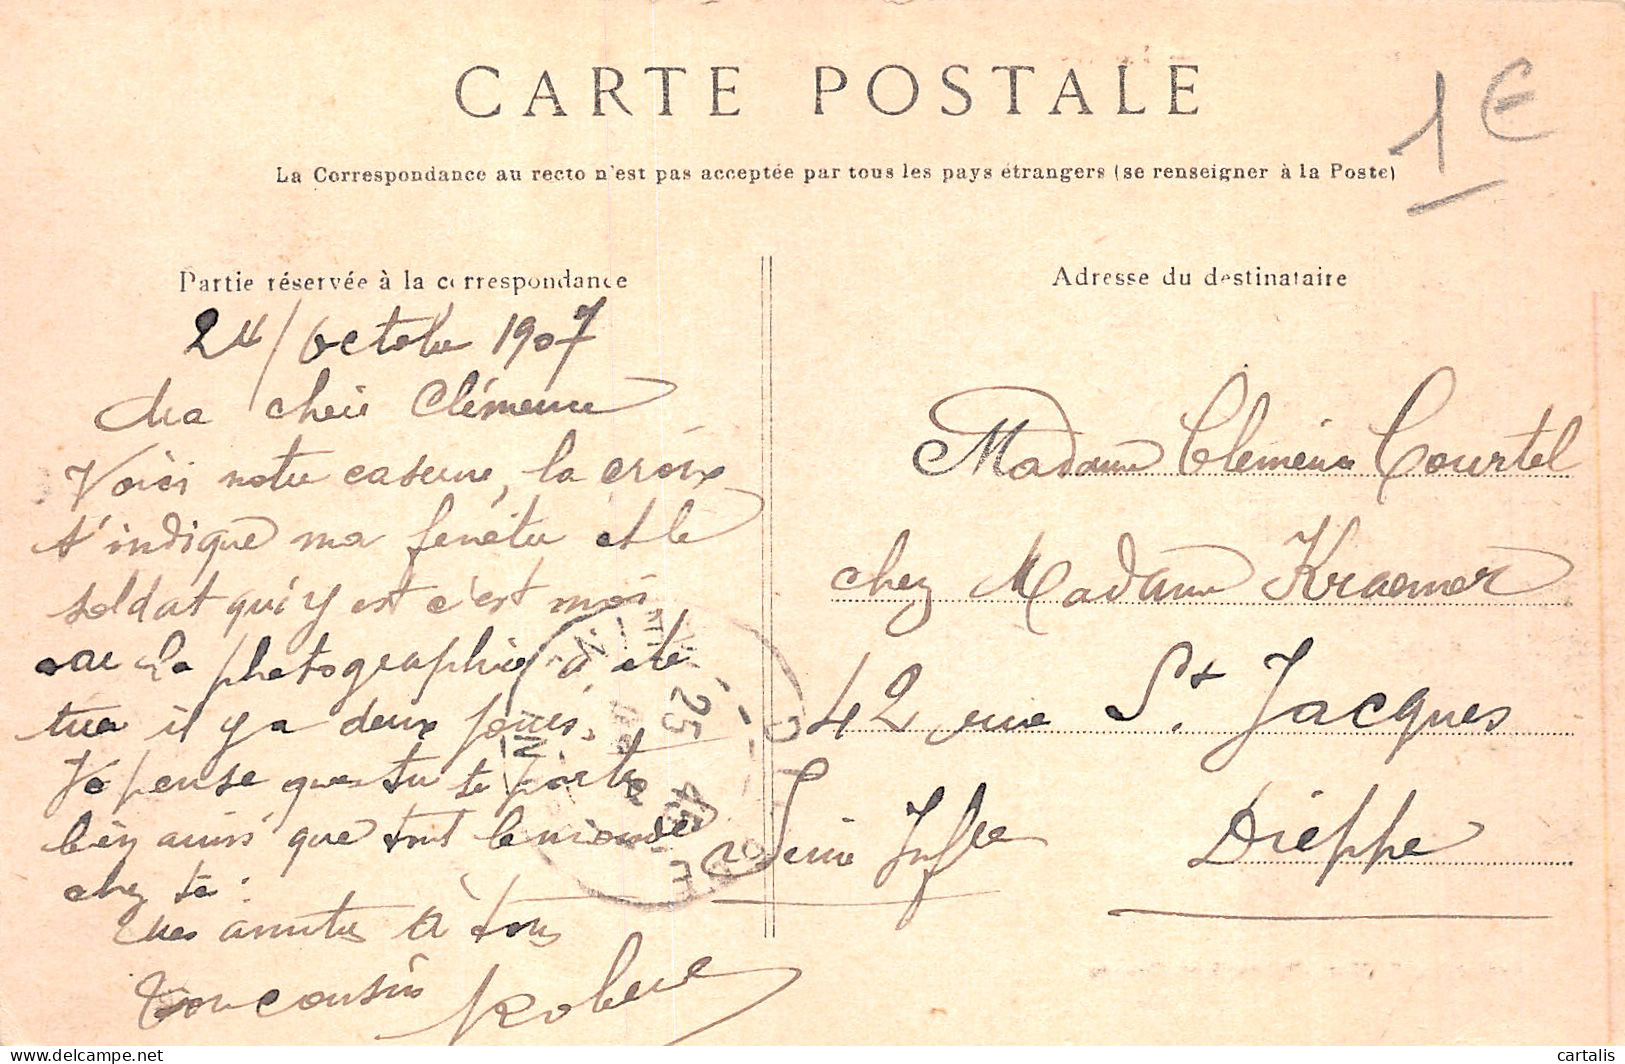 CARTE POSTALE
1 €
La Correspondance au recto n'est pas acceptée par tous les pays étrangers (se renseigner à la Poste)
Partie réservée à la correspondance
24/octobre 1907
Ma chère Clémence
Voici notre caserne, la croix
t'indique ma fenêtre et le
soldat qui y est c'est moi
car la photographie a été
tiré il y a deux jours.
Je pense que tu te porte
bien aussi que tout le monde
chez te
Mes amitiés à tous
Ton cousin Robert
25
45
Adresse du destinataire
Madame Clémence Courtel
chez Madame Kraemer
42 rue St. Jacques
Dieppe
Seine Infre
hosting.cartalis
cartalis